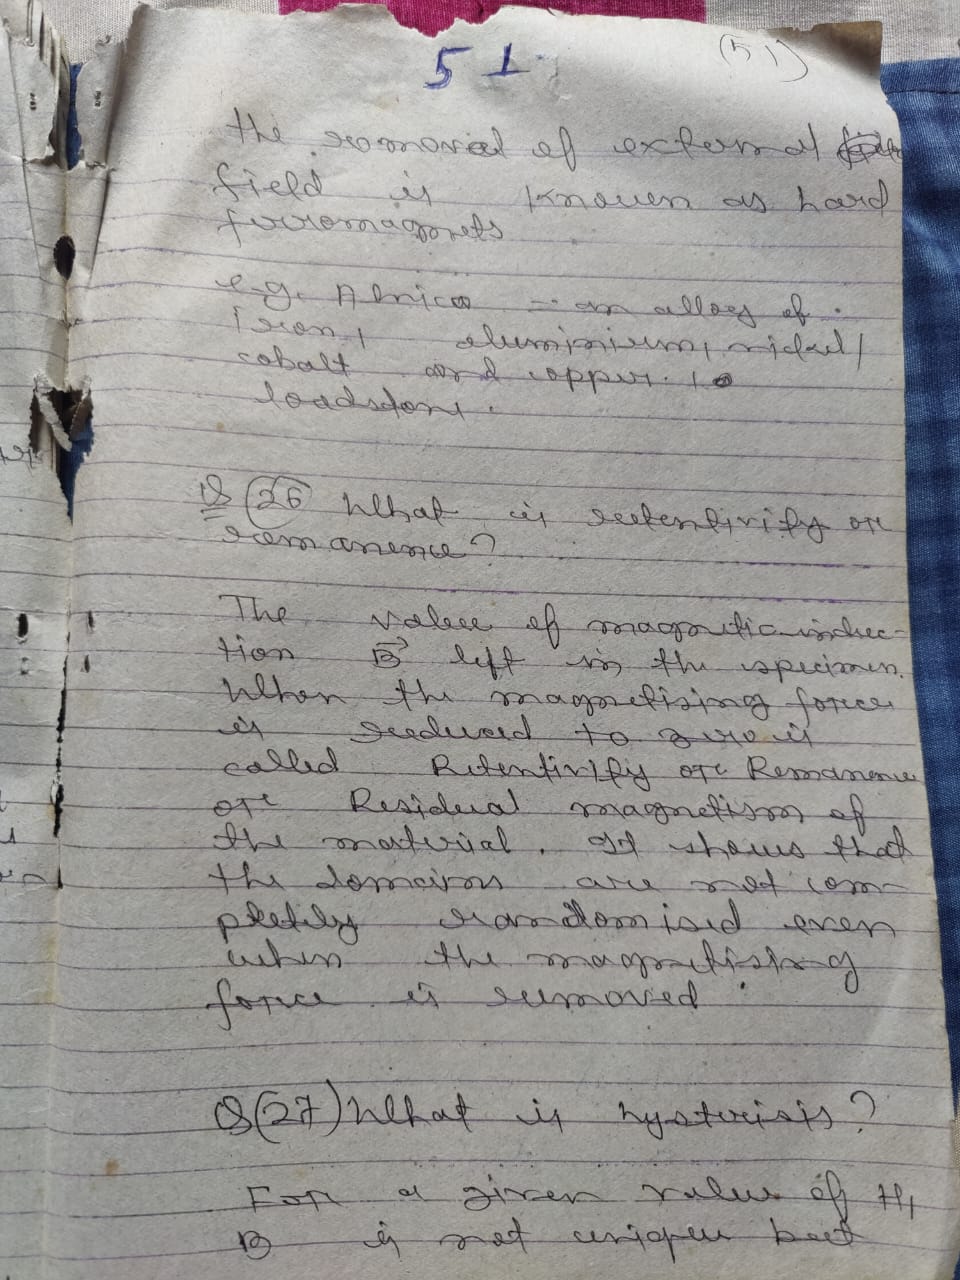 51
(51)
the removal of external
field is known as hard
ferromagnets
e.g. Alnico - an alloy of
iron, aluminium, nickel,
cobalt and copper.
loadstone.
Q (26) What is retentivity or
remanence?
The value of magnetic induc-
tion B⃗ left in the specimen.
When the magnetising force
is reduced to zero is
called Retentivity or Remanence
or Residual magnetism of
the material. It shows that
the domains are not com-
pletely randomised even
when the magnetising
force is removed.
Q(27) What is hysterisis?
For a given value of H,
B is not unique but